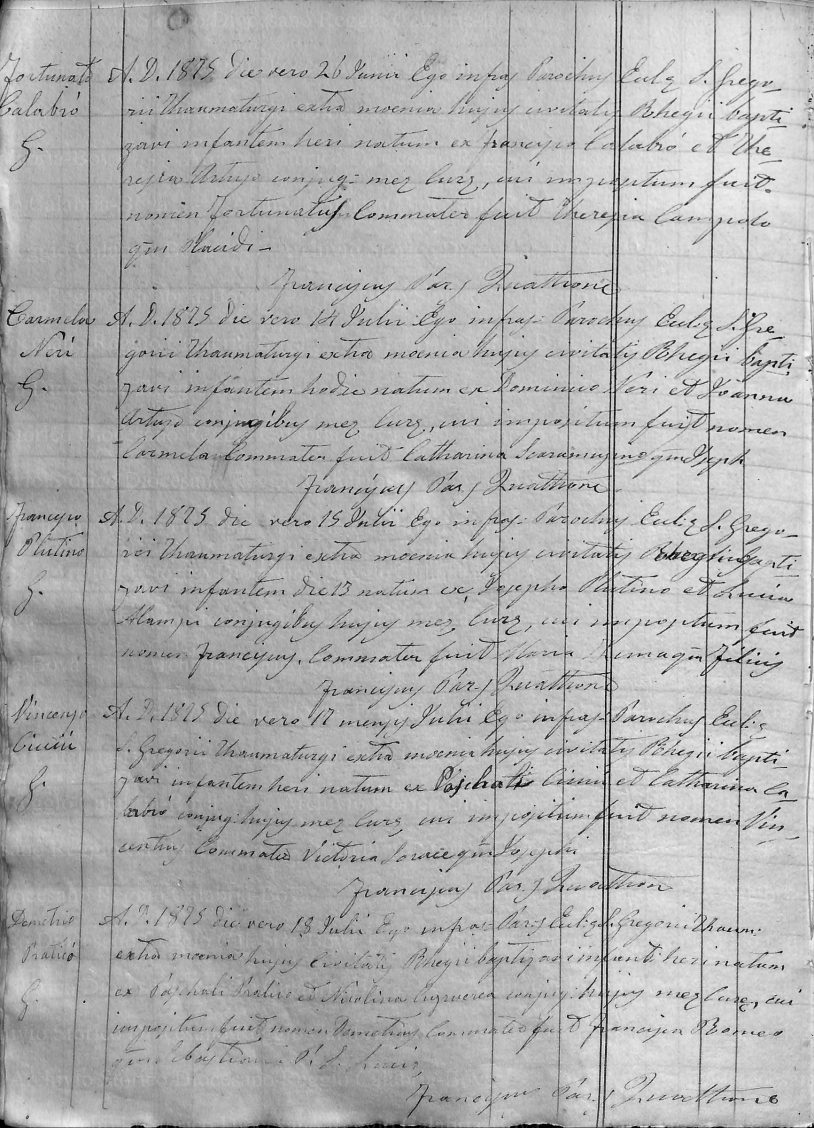 Fortunato
Calabrò
G.
A. D. 1875 die vero 26 Junii Ego infras Parochus Eccliæ S. Grego-
rii Thaumaturgi extra moenia hujus civitatis Rhegii bapti-
zavi infantem heri natum ex Francisco Calabrò et The-
resia Artuso conjug: meæ Curæ, cui impositum fuit
nomen Fortunatus Commater fuit Theresia Campolo
qm Placidi -
Franciscus Par. Quattrone
Carmela
Neri
G.
A. D. 1875 die vero 14 Julii Ego infras: Parochus Eccliæ S. Gre-
gorii Thaumaturgi extra moenia hujus civitatis Rhegii bapti-
zavi infantem hodie natum ex Dominico Neri et Joanna
Artuso conjugibus meæ Curæ, cui impositum fuit nomen
Carmela Commater fuit Catharina Scaramuzzino qm Joseph
Franciscus Par. Quattrone
Francesco
Plutino
G.
A. D. 1875 die vero 15 Julii Ego infras: Parochus Eccliæ S. Grego-
rii Thaumaturgi extra moenia hujus civitatis Rhegii bapti-
zavi infantem die 13 natum ex Josepho Plutino et Lucia
Alampi conjugibus hujus meæ Curæ, cui impositum fuit
nomen Franciscus. Commater fuit Maria qm Felicis
Franciscus Par. Quattrone
Vincenzo
Cicciù
G.
A. D. 1875 die vero 17 mensis Julii Ego infras: Parochus Eccliæ
S. Gregorii Thaumaturgi extra moenia hujus civitatis Rhegii bapti-
zavi infantem heri natum ex Paschali Cicciù et Catharina Ca-
labrò conjug: hujus meæ Curæ, cui impositum fuit nomen Vin-
centius Commater Victoria Sorace qm Josephi
Franciscus Par. Quattron
Demetrio
Praticò
G.
A. D. 1875 die vero 18 Julii Ego infras: Par. Eccliæ S. Gregorii Thaum:
extra moenia hujus civitatis Rhegii baptizavi infant: heri natum
ex Paschali Praticò et Nicolina conjug: hujus meæ Curæ, cui
impositum fuit nomen Demetrius Commater fuit Francisca Romeo
qm Sebastiani P. S. Luciæ
Franciscus Par. Quattrone